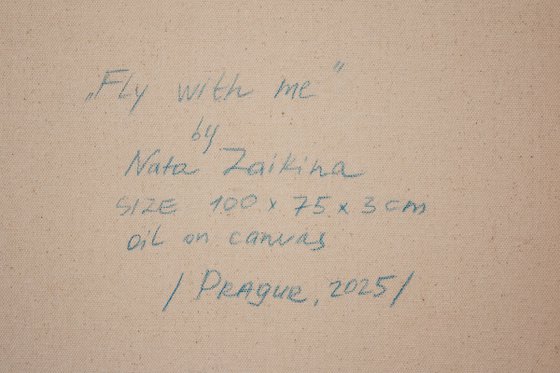 „Fly with me"
by
Nata Zaikina
SIZE 100 x 75 x 3 cm
oil on canvas
/ PRAgue, 2025/